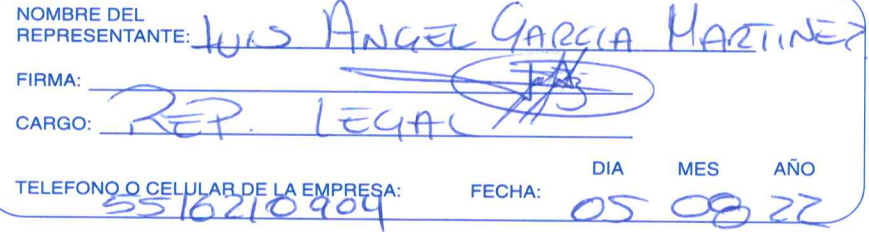 NOMBRE DEL
REPRESENTANTE: LUIS ANGEL GARCIA MARTINEZ
FIRMA:
CARGO: REP. LEGAL
DIA MES AÑO
TELEFONO O CELULAR DE LA EMPRESA: 5516210904 FECHA: 05 08 22